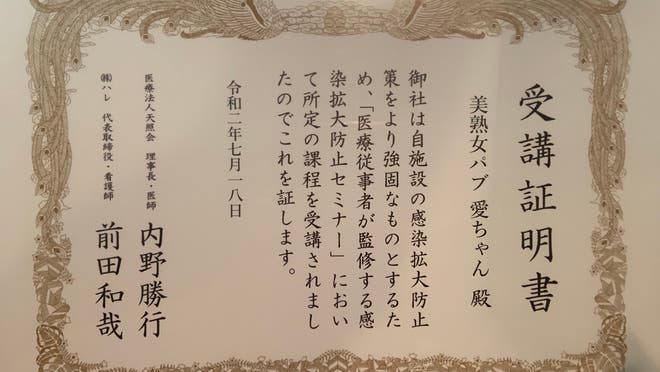 受講証明書
美熟女パブ 愛ちゃん 殿
御社は自施設の感染拡大防止
策をより強固なものとするた
め、「医療従事者が監修する感
染拡大防止セミナー」におい
て所定の課程を受講されまし
たのでこれを証します。
令和二年七月一八日
医療法人天照会 理事長・医師 内野勝行
㈱ハレ 代表取締役・看護師 前田和哉